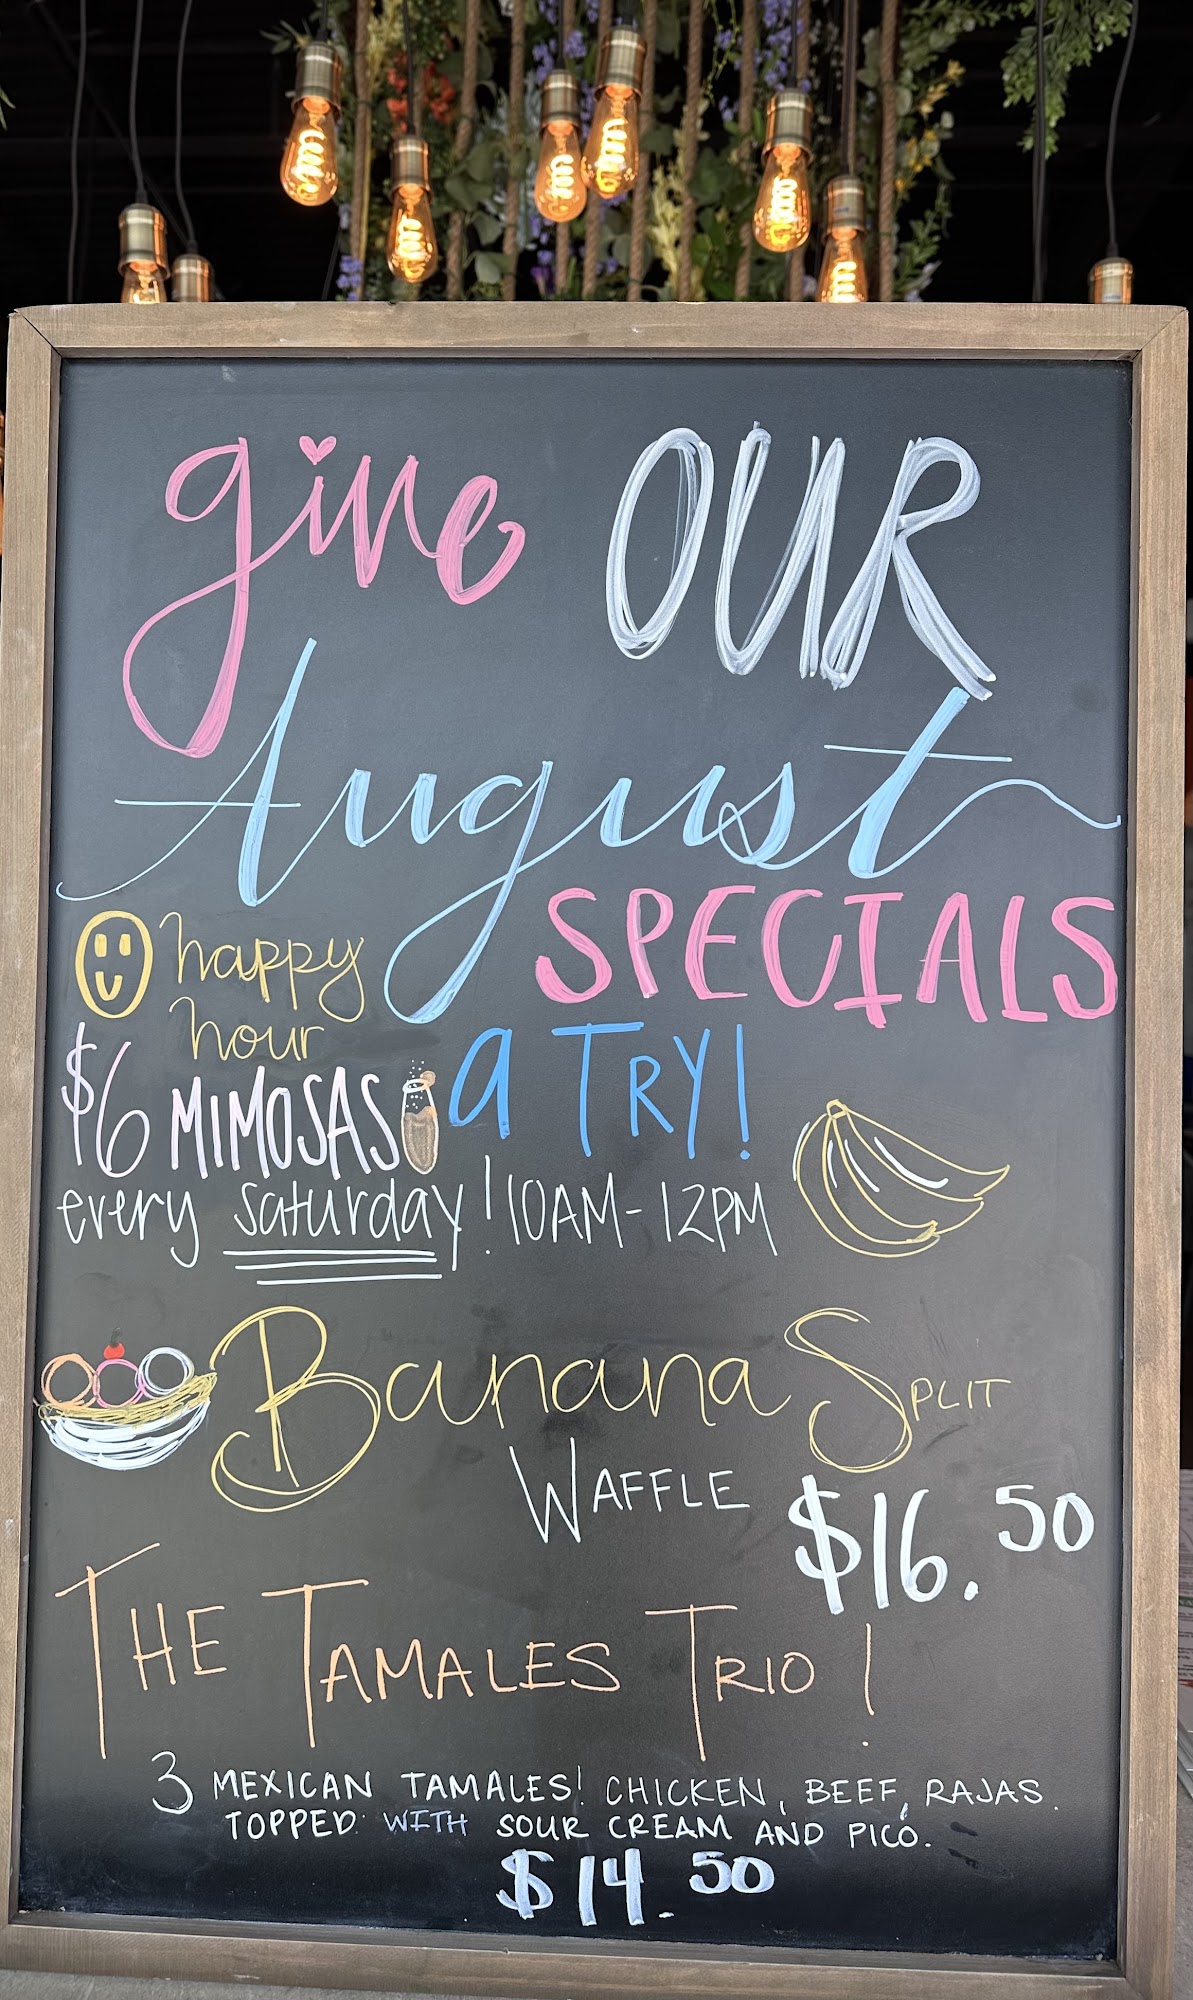 give OUR
August
SPECIALS
a TRY!
happy
hour
$6 MIMOSAS
every saturday! 10AM-12PM
Banana SPLIT
WAFFLE
$16.50
THE TAMALES TRIO!
3 MEXICAN TAMALES! CHICKEN, BEEF, RAJAS.
TOPPED WITH SOUR CREAM AND PICO.
$14.50